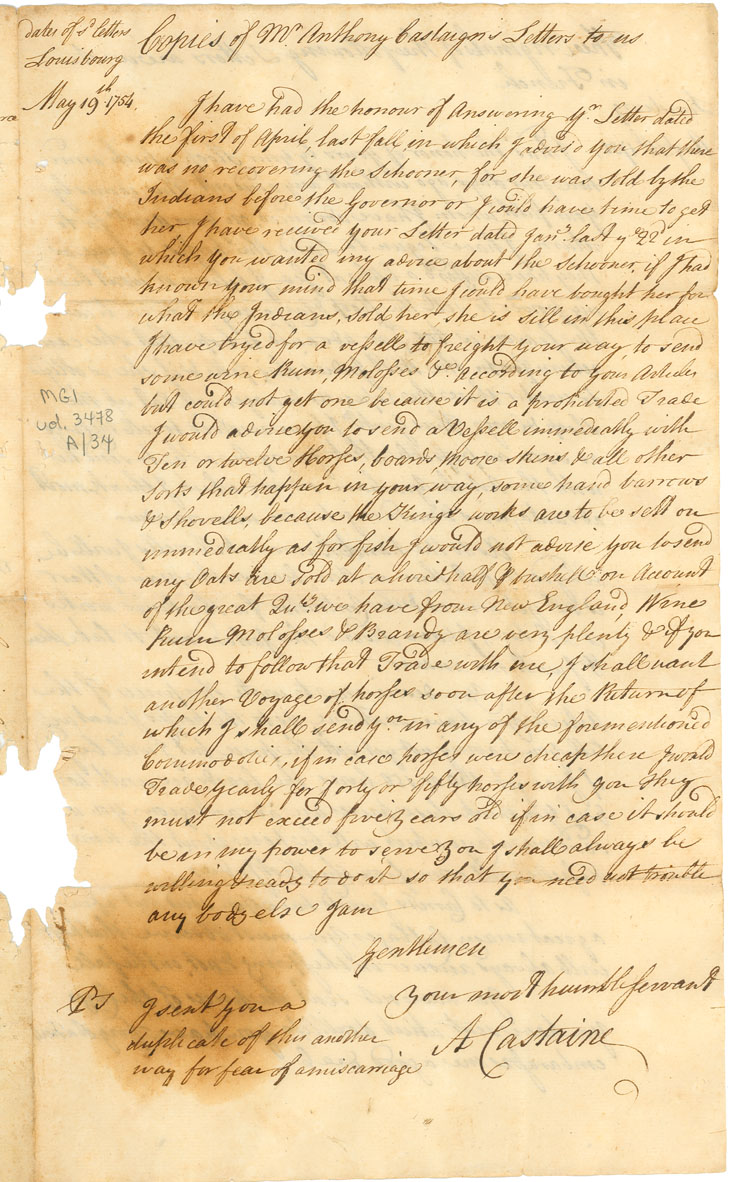 dates of sd letters
Louisbourg
May 19th 1754
Copies of Mr Anthony Castaigns Letters to us
I have had the honour of Answering yr. Letter dated
the first of April, last fall in which I advis'd you that there
was no recovering the Schooner, for she was sold by the
Indians before the Governor or I could have time to get
her, I have received your Letter dated Jany. last ye 22d in
which you wanted my advice about the Schooner, if I had
known your mind that time I could have bought her for
what the Indians, sold her, she is sill in this place
I have tryed for a vessell to freight your way, to send
some wine Rum, Molosses &c. According to your Articles
but could not get one because it is a prohibited Trade
I would advise you to send a Vessell immediatly with
Ten or twelve Horses, boards Moose skins & all other
Sorts that happen in your way, some hand barrows
& Shovells, because the Kings works are to be sett on
immediatly as for fish I would not advise you to send
any Oats are Sold at a livre & half ⅌ bushell on Account
of the great Quty. we have from New England, Wine
Rum Molosses & Brandy are very plenty & if you
intend to follow that Trade with me, I shall want
another Voyage of horses soon after the Return of
which I shall send you in any of the forementioned
Commodoties, if in case horses were cheap there I would
Trade yearly for forty or fifty horses with you they
must not exceed five years old if in case it should
be in my power to serve you I shall always be
willing & ready to do it so that you need not trouble
any body else I am
Gentlemen
Your most humble Servant
A Castaine
Ps I sent you a
duplicate of this another
way for fear of a miscarriage
MG1
vol. 3478
A/34